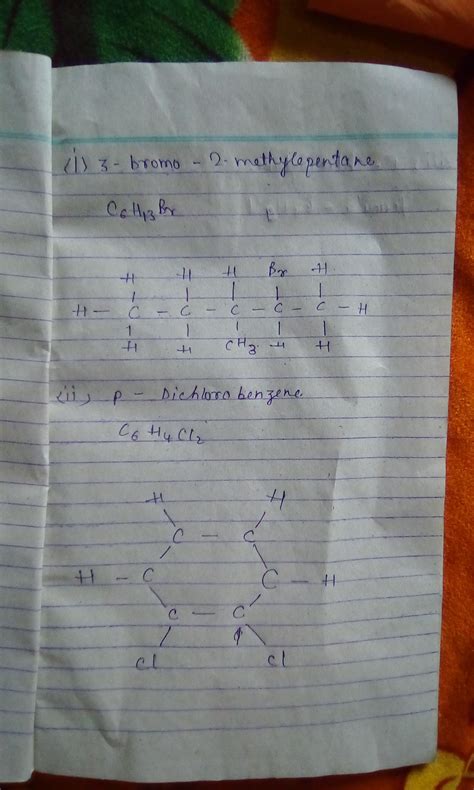 (i) 3-bromo-2-methylepentane
C6H13Br
H H H Br H
H-C-C-C-C-C-H
H H CH3 H H
(ii) p-Dichlorobenzene
C6H4Cl2
H H
C-C
H-C C-H
C-C
Cl Cl